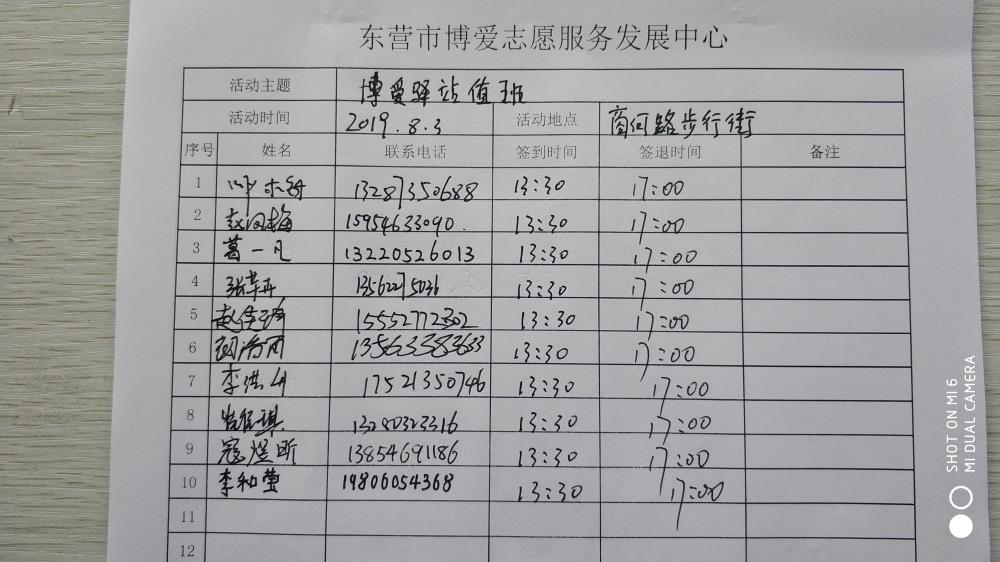 东营市博爱志愿服务发展中心
活动主题 博爱驿站值班
活动时间 2019.8.3 活动地点 商河路步行街
序号 姓名 联系电话 签到时间 签退时间 备注
1 13287350688 13:30 17:00
2 赵闪梅 15954633090 13:30 17:00
3 葛一凡 13220526013 13:30 17:00
4 13562275036 13:30 17:00
5 15552772302 13:30 17:00
6 13563383633 13:30 17:00
7 李洪 17521350746 13:30 17:00
8 13280323316 13:30 17:00
9 寇煜昕 13854691186 13:30 17:00
10 李和莹 19806054368 13:30 17:00
11
12
SHOT ON MI 6
MI DUAL CAMERA